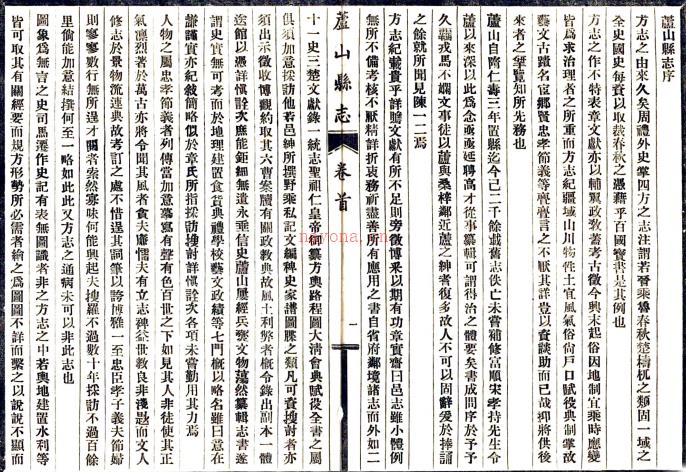 蘆山縣志序
方志之由來久矣周禮外史掌四方之志注謂若晉乘魯春秋楚檮杌之類固一域之
全史國史每資以取裁春秋之憑藉乎百國寶書是其例也
方志之作不特表章文獻亦以輔翼政敎蓋考古徵今興末起俗因地制宜乘時應變
皆爲求治理者之所重而方志紀疆域山川物性土宜風氣俗尚戶口賦役典制掌故
藝文古蹟名宦鄉賢忠孝節義等亹亹言之不厭其詳豈以資談助而已哉抑將供後
來者之擥覽知所先務也
蘆山自隋仁壽三年置縣迄今已二千餘載舊志佚亡未嘗補修富順宋孝持先生令
蘆以來深以此爲念亟亟延聘高才從事纂輯可謂得治之體要矣書成問序於予予
久覊戎馬不嫺文事徒以蘆與桑梓鄰近蘆之紳耆復多故人不可以固辭爰於捧誦
之餘就所聞見陳一二焉
方志紀載貴乎詳贍文獻有所不足則旁徵博采以期有功章實齋曰邑志雖小體例
無所不備考核不厭精詳折衷務祈盡善所有應用之書自省府鄰境諸志而外如二
蘆山縣志
卷首
一
十一史三楚文獻錄一統志聖祖仁皇帝御纂方輿路程圖大淸會典賦役全書之屬
俱須加意採訪他若邑紳所撰野乘私記文編稗史家譜圖牒之類凡可資搜討者亦
須出示徵收博觀約取其六曹案牘有關政敎典故風土利弊者槪令錄出副本一體
送館以憑詳愼銓次庶能鉅細無遺永垂信史蘆山屢經兵燹文物蕩然纂輯志書遂
謂史實無可考而於地理建置食貨典禮學校藝文政績等七門槪以略名雖曰意在
謙謹實亦紀敘簡略似於章氏所指採訪搜討詳愼銓次各項未嘗勤用其力焉
人物之屬忠孝節義者列傳當加意摹寫有聲有色百世之下如見其人非徒使其正
氣凜烈著於萬古亦將令聞其風者貪夫廉懦夫有立志裨益世敎良非淺尠而文人
修志於景物流連典故考訂之處不惜逞其詞筆以誇博雅一至忠臣孝子義夫節婦
則寥寥數行無所逞才閱者索然寡味何能興起夫搜羅不過數十年採訪不過百餘
里倘能加意結撰何至一略如此此又方志之通病未可以非此志也
圖象爲無言之史司馬遷作史記有表無圖識者非之方志之中若輿地建置水利等
皆可取其有關經要而規方形勢所必需者繪之爲圖圖不詳而繫之以說說不顯而